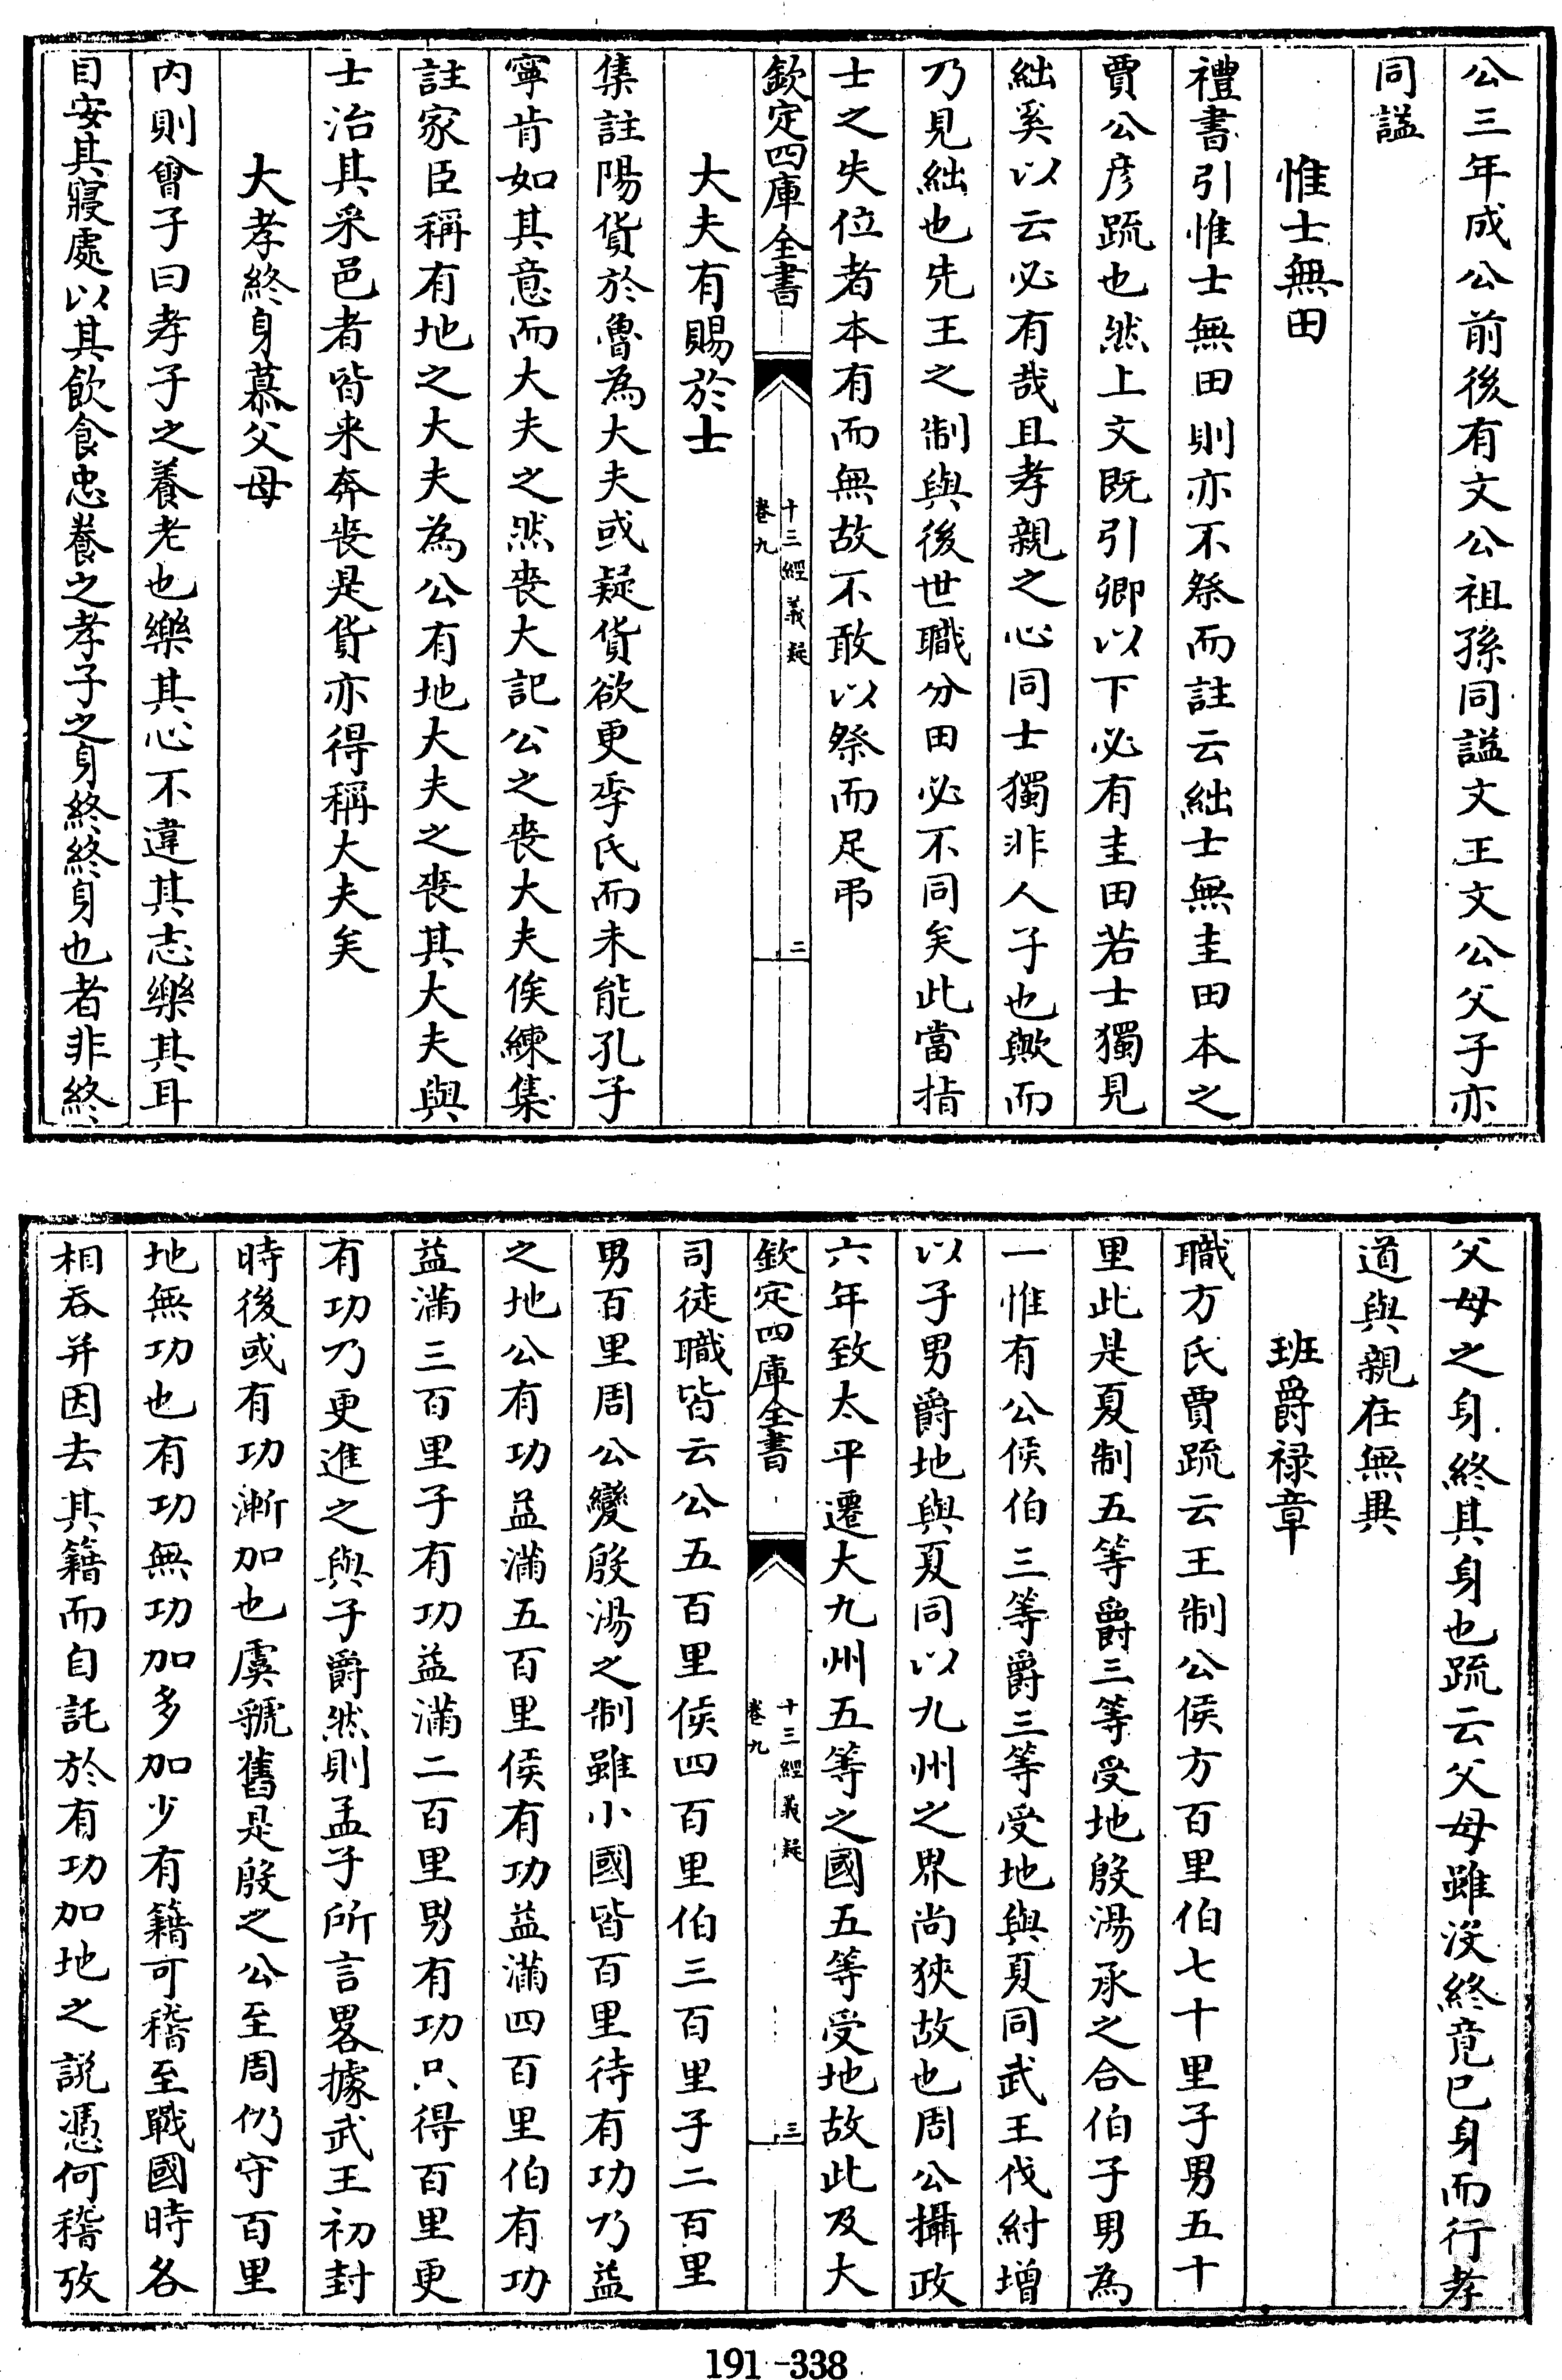 公三年成公前後有文公祖孫同謚文王文公父子亦
同謚
惟士無田
禮書引惟士無田則亦不祭而註云絀士無圭田本之
賈公彦疏也然上文既引卿以下必有圭田若士獨見
絀奚以云必有哉且孝親之心同士獨非人子也歟而
乃見絀也先王之制與後世職分田必不同矣此當指
士之失位者本有而無故不敢以祭而足弔
欽定四庫全書
十三經義疑
卷九
二
大夫有賜於士
集註陽貨於魯為大夫或疑貨欲更季氏而未能孔子
寧肯如其意而大夫之然喪大記公之喪大夫俟練集
註家臣稱有地之大夫為公有地大夫之喪其大夫與
士治其采邑者皆来奔喪是貨亦得稱大夫矣
大孝終身慕父母
内則曾子曰孝子之養老也樂其心不違其志樂其耳
目安其寢處以其飲食忠養之孝子之身終終身也者非終
父母之身終其身也疏云父母雖没終竟已身而行孝
道與親在無異
班爵禄章
職方氏賈疏云王制公侯方百里伯七十里子男五十
里此是夏制五等爵三等受地殷湯承之合伯子男為
一惟有公侯伯三等爵三等受地與夏同武王伐紂增
以子男爵地與夏同以九州之界尚狹故也周公攝政
六年致太平遷大九州五等之國五等受地故此及大
欽定四庫全書
十三經義疑
卷九
三
司徒職皆云公五百里侯四百里伯三百里子二百里
男百里周公變殷湯之制雖小國皆百里待有功乃益
之地公有功益滿五百里侯有功益滿四百里伯有功
益滿三百里子有功益滿二百里男有功只得百里更
有功乃更進之與子爵然則孟子所言畧據武王初封
時後或有功漸加也虞虢舊是殷之公至周仍守百里
地無功也有功無功加多加少有籍可稽至戰國時各
相吞并因去其籍而自託於有功加地之說憑何稽攷
191-338